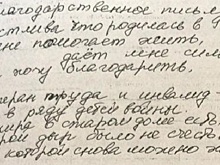 благодарственное письмо
стлива что родилась в
не помогает жить,
даёт мне сил
хочу благодарить,
ран труда и инвалид
в ряду детей войны
мира в старой доме есть,
рой дыр было не счесть
которой снова можно